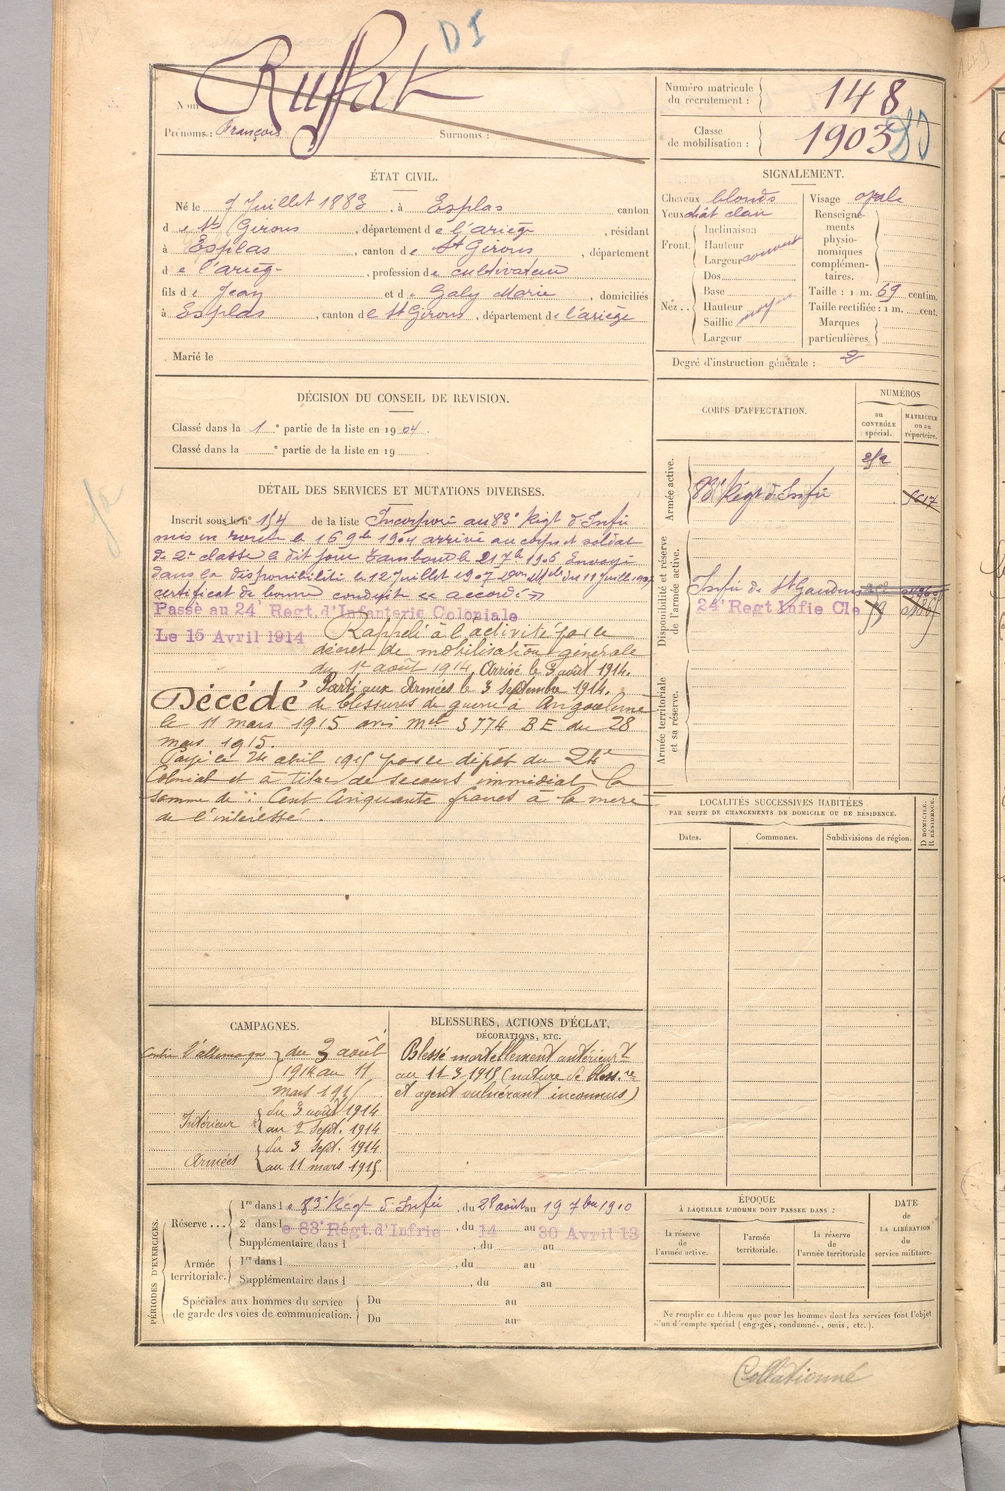 DJ
Nom Ruffat
Prénoms : François Surnoms :
Numéro matricule du recrutement : 148
Classe de mobilisation : 1903
ÉTAT CIVIL.
Né le 7 Juillet 1883, à Esplas canton
de St Girons, département de l'ariège, résidant
à Esplas, canton de St Girons, département
de l'ariège, profession de cultivateur
fils de Jean et de Galy Marie, domiciliés
à Esplas, canton de St Girons, département de l'ariège
Marié le
SIGNALEMENT.
Cheveux blonds
Yeux chât clair
Front.
Inclinaison
Hauteur
Largeur couverte
Nez..
Dos
Base
Hauteur
Saillie moyen
Largeur
Visage ovale
Renseignements physionomiques complémentaires.
Taille : 1 m. 69 centim.
Taille rectifiée : 1 m. cent.
Marques particulières.
Degré d'instruction générale : 2
DÉCISION DU CONSEIL DE REVISION.
Classé dans la 1e partie de la liste en 1904.
Classé dans la e partie de la liste en 19
DÉTAIL DES SERVICES ET MUTATIONS DIVERSES.
Inscrit sous le n° 154 de la liste Incorporé au 83e Régt d'Infie
mis en route le 16 9bre 1904 arrivé au corps et soldat
de 2e classe le dit jour Tambour le 21 7bre 1906 Envoyé
dans la disponibilité le 12 juillet 1907
certificat de bonne conduite « accordé »
Passé au 24e Regt. d'Infanterie Coloniale
Le 15 Avril 1914 Rappelé à l'activité par le
décret de mobilisation générale
du 1er août 1914. Arrivé le 3 août 1914.
Parti aux Armées le 3 Septembre 1914.
Décédé de blessures de guerre à Angoulême
le 11 mars 1915 avis Mel 5774 BE du 28
mars 1915.
Payé le 24 abril 1915 par le dépôt du 24e
Colonial et à titre de secours immédiat la
somme de : Cent Cinquante francs à la mère
de l'intéressé.
CORPS D'AFFECTATION.
NUMÉROS
DU CONTRÔLE spécial.
MATRICULE OU DU répertoire.
Armée active.
83e Régt d'Infie
Disponibilité et réserve de l'armée active.
Infie de St Gaudens
24e Regt Infie Cle
Armée territoriale et sa réserve.
LOCALITÉS SUCCESSIVES HABITÉES
PAR SUITE DE CHANGEMENTS DE DOMICILE OU DE RÉSIDENCE.
Dates. Communes. Subdivisions de région. D DOMICILE. R RÉSIDENCE.
CAMPAGNES.
Contre l'allemagne du 3 août
1914 au 11
mars 1915
Intérieur du 3 août 1914
au 2 Sept. 1914
Armées du 3 Sept. 1914
au 11 mars 1915
BLESSURES, ACTIONS D'ÉCLAT,
DÉCORATIONS, ETC.
Blessé mortellement antérieurt
au 11-3-1915 (nature de bless.re
et agent vulnérant inconnus)
PÉRIODES D'EXERCICES.
Réserve...
1re dans le 83e Régt d'Infie, du 28 août au 19 7bre 1910
2e dans le 83e Régt. d'Infrie, du 14 au 30 Avril 13
Supplémentaire dans l , du au
Armée territoriale.
1re dans l , du au
Supplémentaire dans l , du au
Spéciales aux hommes du service de garde des voies de communication.
Du au
Du au
ÉPOQUE
À LAQUELLE L'HOMME DOIT PASSER DANS :
la réserve de l'armée active.
l'armée territoriale.
la réserve de l'armée territoriale
DATE de LA LIBÉRATION du service militaire.
Ne remplir ce tableau que pour les hommes dont les services font l'objet
d'un décompte spécial (engagés, condamnés, omis, etc.).
Collationné